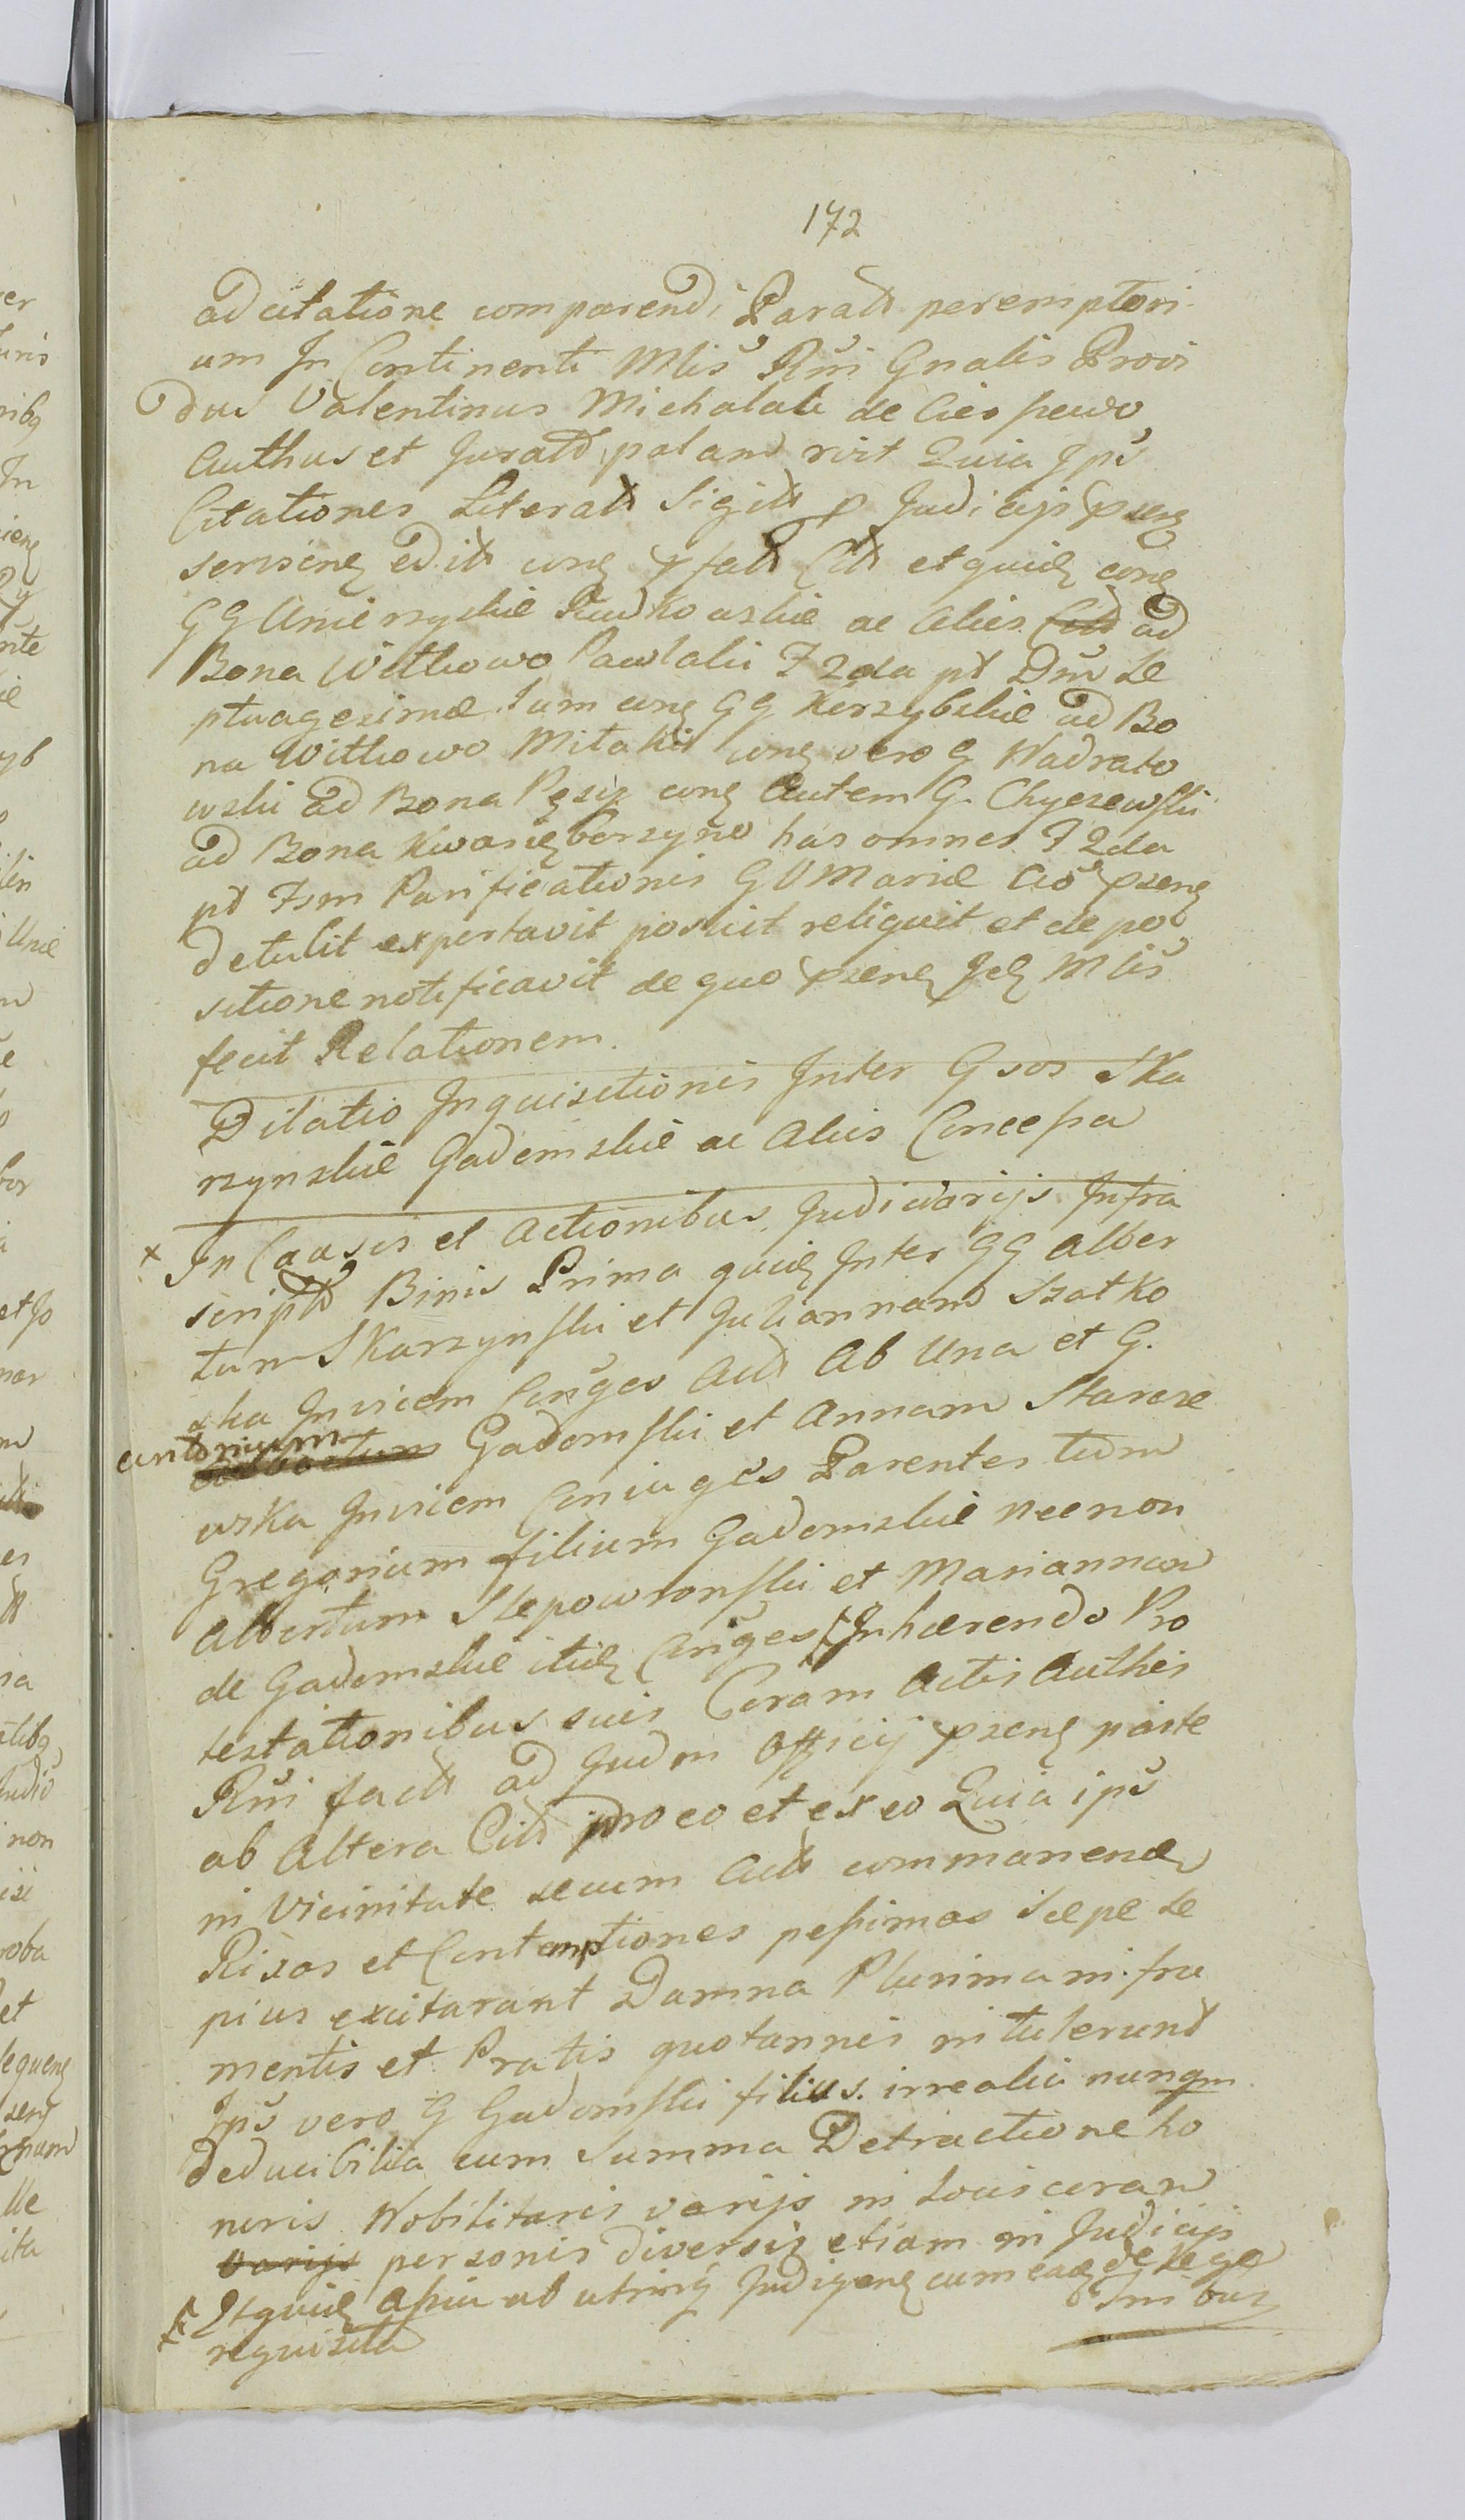 172
ad citatione comparendi Parats peremptori
um In Continenti Mlis Rni Gnalis Provi
dus Valentinus Michalak de Cieszewo
Authus et Jurats palam rvit Quia Ips
Citationes Literats Sigits p Judicijs pseng
edits
GG Unierzyskie Rudkowskie ac Alies ad
Bona Witkowo Pawlaki F 2da pt Dm Se
ptuagesimæ Tum cong GG Kerzybskie ad Bo
na Witkowo Mitaki cong vero G Nadrato
wski ad Bona Pęsiz cong Autem G. Chyczewski
ad Bona Kwasięborzyno has omnes F 2da
pt Fsm Purificationis GV Mariæ Ao pseng
detulit exportavit posuit reliquit et de po
sitione notificavit de quo pseng Mlis
fecit Relationem.
Dilatio Inquisitionis Inter Gsos Ska
rzynskie Gademskie ac Alies Concessa
+ In Causis et Actionibus Judiciarijs Infra
scripts Binis Prima quid Inter GG Alber
tum Skarzynski et Juliannam Szatko
ska Invicem Conges Acts Ab Una et G.
antonium Gadomski et Annam Starcze
wska Invicem Coniuges Parentes tum
Gregorium filium Gadomskie necnon
Albertum Slepowronski et Mariannam
de Gadomskie itid Conges Inhærendo Pro
testationibus suis Coram Actis Authis
Rni facts ad Judm Officij pseng parte
ab Altera Cits pro eo et ex eo Quia ips
in Vicinitate secum Acts commanend
Rixas et Contemptiones pessimas Sæpe Se
pius excitarant Damna Plurima in fru
mentis et Pratis quotannis intulerunt
Ips vero G Gadomski filius. irrealia nunqm
deducibilia cum Summa Detractione ho
noris Nobilitaris varijs in Locis coram
varijs personis diversis etiam in Judicijs
Etquid Assia ab utrinq Indigeng cum de lege
requisita